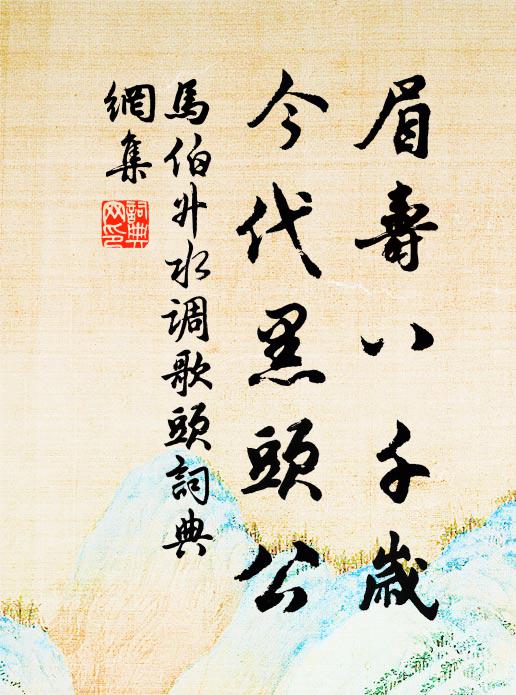 眉壽八千歲
今代黑頭公
馬伯升水調歌頭詞典
網集
詞典
网印